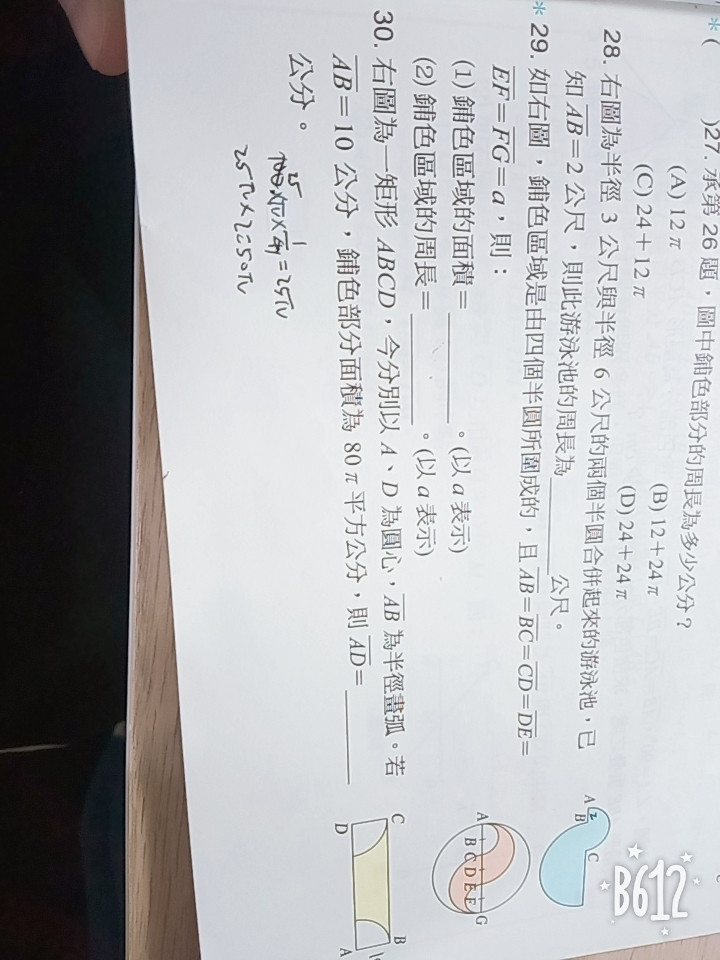 *(　　)27. 承第 26 題，圖中鋪色部分的周長為多少公分？
(A) 12 π
(B) 12＋24 π
(C) 24＋12 π
(D) 24＋24 π
28. 右圖為半徑 3 公尺與半徑 6 公尺的兩個半圓合併起來的游泳池，已
知 AB＝2 公尺，則此游泳池的周長為＿＿＿＿公尺。
A
2
B
C
*29. 如右圖，鋪色區域是由四個半圓所圍成的，且 AB＝BC＝CD＝DE＝
EF＝FG＝a，則：
(1) 鋪色區域的面積＝＿＿＿＿。(以 a 表示)
(2) 鋪色區域的周長＝＿＿＿＿。(以 a 表示)
A B C D E F G
30. 右圖為一矩形 ABCD，今分別以 A、D 為圓心，AB 為半徑畫弧。若
AB＝10 公分，鋪色部分面積為 80 π 平方公分，則 AD＝＿＿＿＿
公分。
C
B
D
A
25π×2=50π
B612